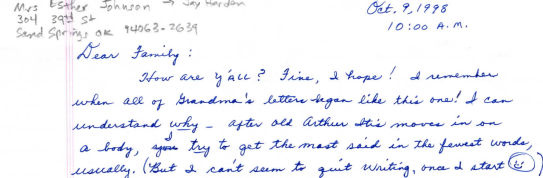 Mrs Esther Johnson → Jay Harden
304 39th St
Sand Springs OK 74063-2639
Oct. 9, 1998
10:00 A.M.
Dear Family:
How are Y'ALL? Fine, I hope! I remember
when all of Grandma's letters began like this one! I can
understand why - after old Arthur Itis moves in on
a body, I try to get the most said in the fewest words,
usually. (But I can't seem to quit writing, once I start ☺)